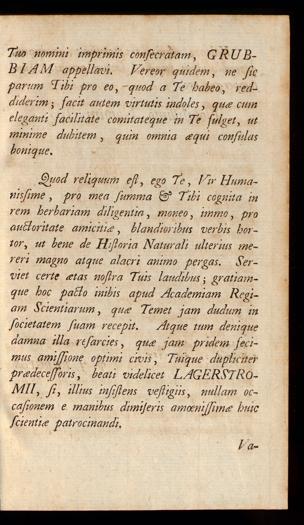 Tuo nomini imprimis conſecratam, GRUB-
BIAM appellavi. Vereor quidem, ne ſic
parum Tibi pro eo, quod a Te habeo, red-
diderim; facit autem virtutis indoles, quæ cum
eleganti facilitate comitateque in Te fulget, ut
minime dubitem, quin omnia æqui conſulas
bonique.
Quod reliquum eſt, ego Te, Vir Huma-
niſſime, pro mea ſumma & Tibi cognita in
rem herbariam diligentia, moneo, immo, pro
auctoritate amicitiæ, blandioribus verbis hor-
tor, ut bene de Hiſtoria Naturali ulterius me-
reri magno atque alacri animo pergas. Ser-
viet certe ætas noſtra Tuis laudibus; gratiam-
que hoc pacto inibis apud Academiam Regi-
am Scientiarum, quæ Temet jam dudum in
ſocietatem ſuam recepit. Atque tum denique
damna illa reſarcies, quæ jam pridem feci-
mus amiſſione optimi civis, Tuique dupliciter
prædeceſſoris, beati videlicet LAGERSTRO-
MII, ſi, illius inſiſtens veſtigiis, nullam oc-
caſionem e manibus dimiſeris amœniſſimæ huic
ſcientiæ patrocinandi.
Va-